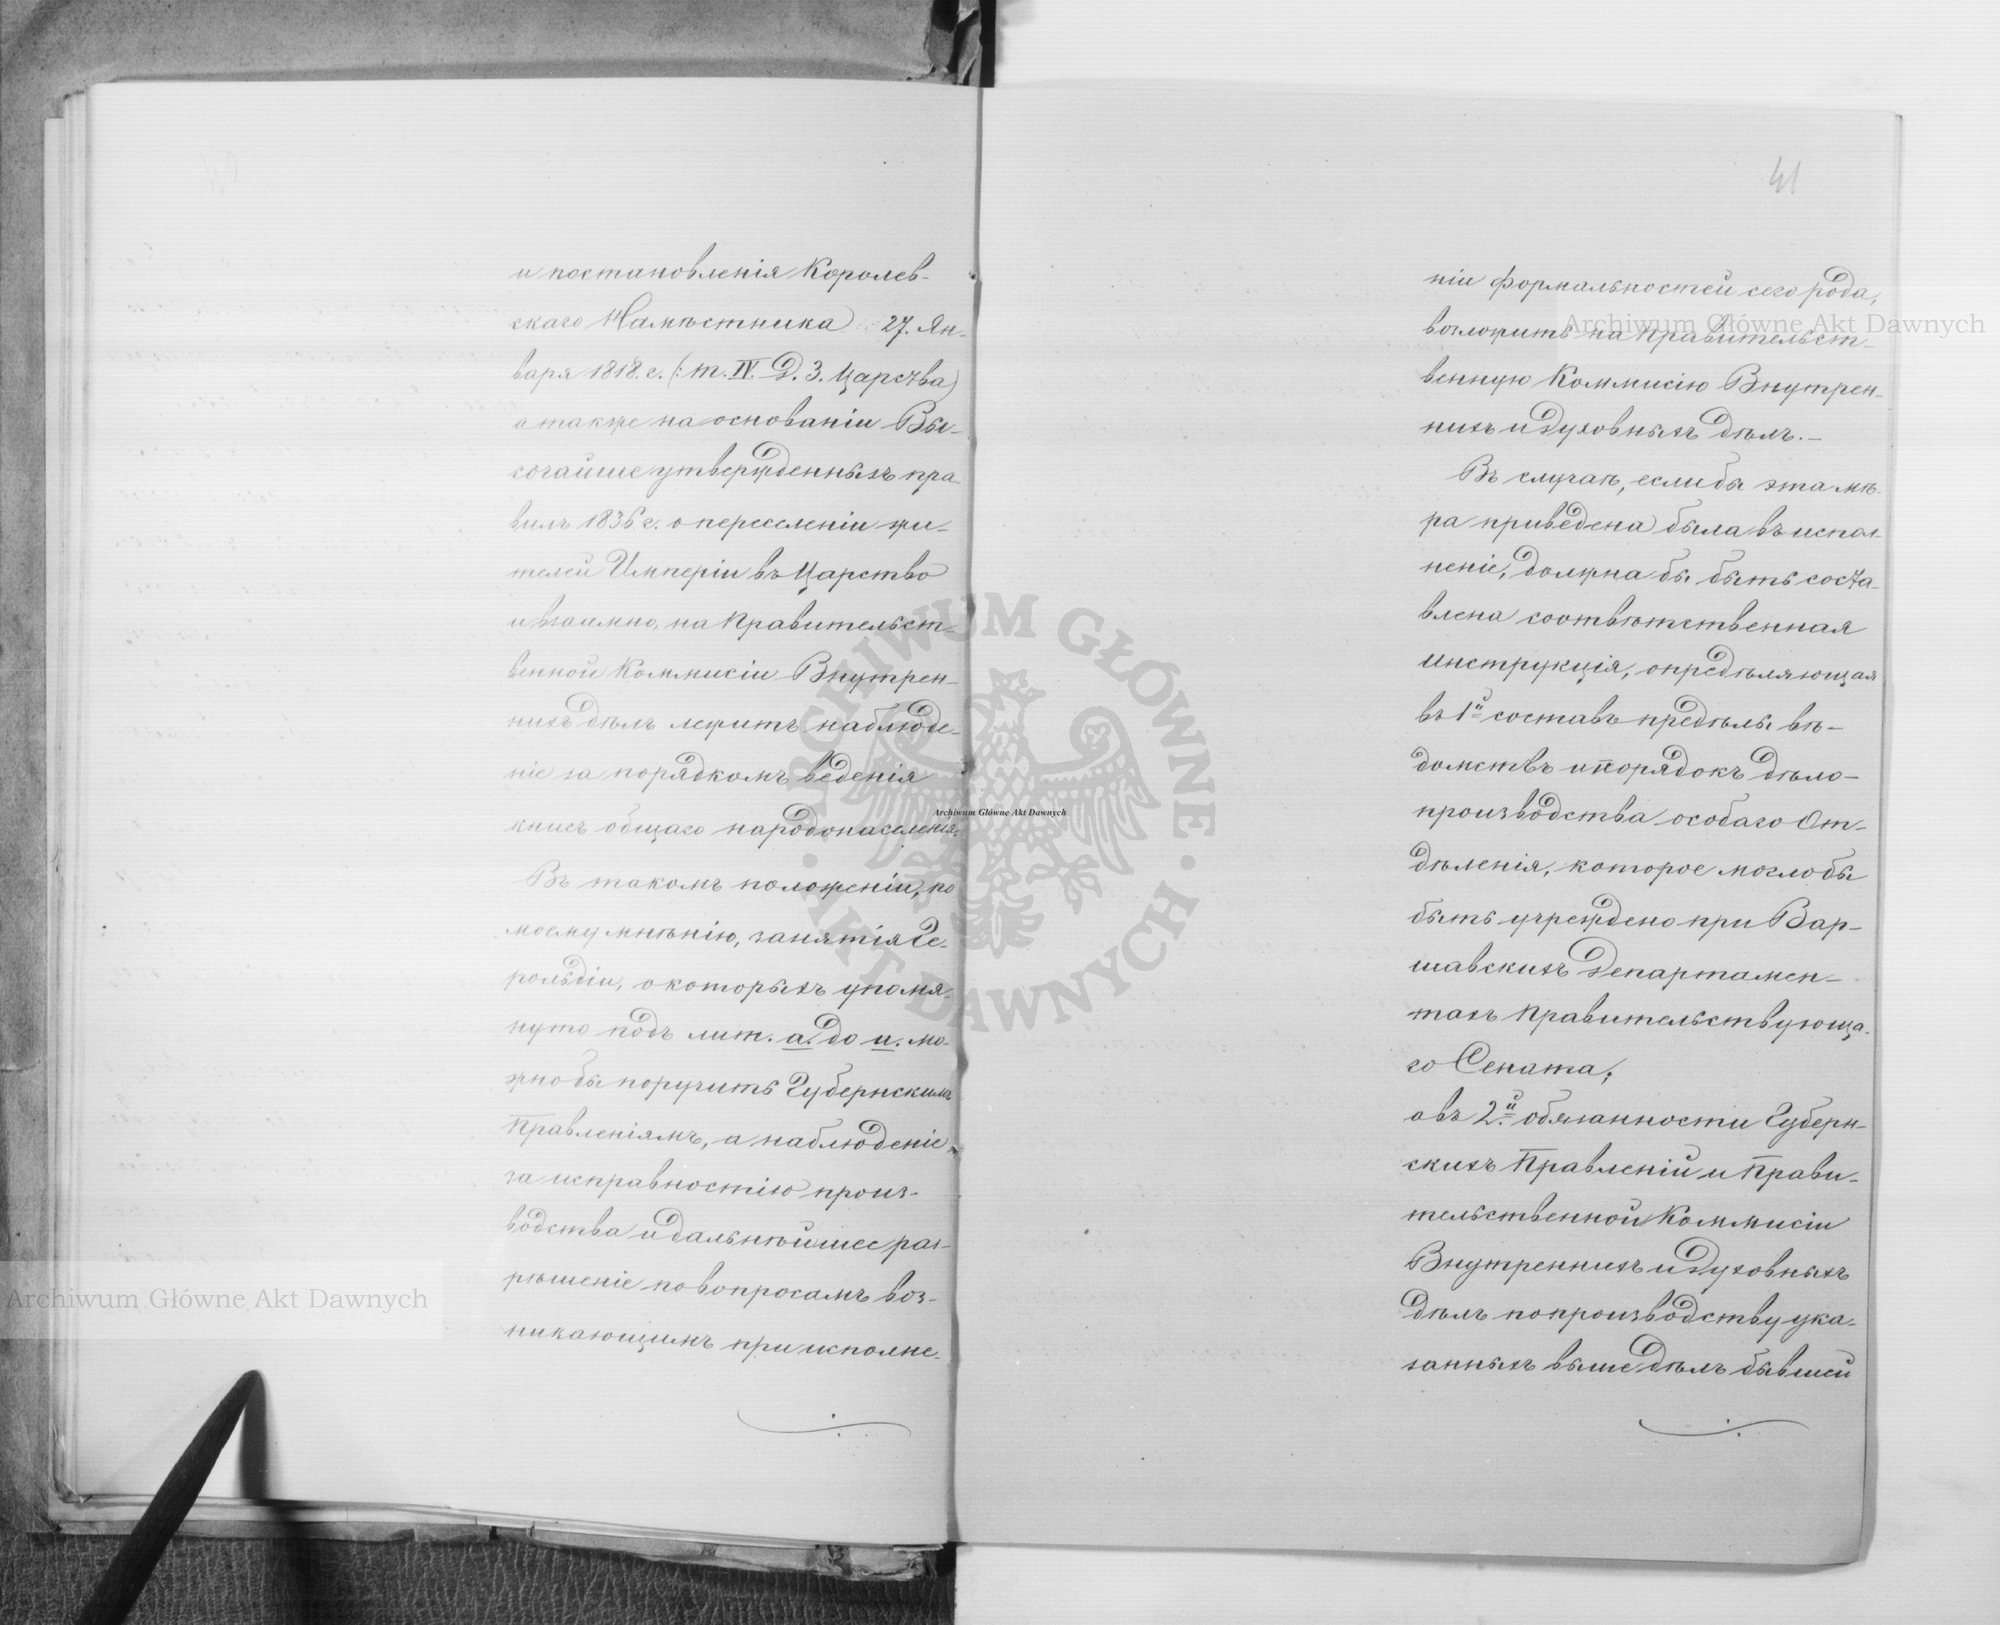 и постановленія Королев-
скаго Намѣстника 27. Ян-
варя 1818. г. (: т. IV. Д. З. Царства)
а также на основаніи Вы-
сочайше утвержденныхъ пра-
вилъ 1836 г. о переселеніи жи-
телей Имперіи въ Царство
и взаимно, на Правительст-
венной Коммисіи Внутрен-
нихъ дѣлъ лежитъ наблюде-
ніе за порядкомъ веденія
книгъ общаго народонаселенія.
Въ такомъ положеніи, по
моему мнѣнію, занятія Ге-
рольдіи, о которыхъ упомя-
нуто подъ лит. а. до и. мо-
жно бы поручить Губернскимъ
Правленіямъ, а наблюденіе
за исправностію произ-
водства и дальнѣйшее раз-
рѣшеніе по вопросамъ воз-
никающимъ при исполне-
41
ніи формальностей сего рода,
возложить на Правительст-
венную Коммисію Внутрен-
нихъ и Духовныхъ дѣлъ.-
Въ случаѣ, если бы эта мѣ-
ра приведена была въ испол-
неніе, должна бы быть соста-
влена соотвѣтственная
инструкція, опредѣляющая
въ 1й составъ предѣлы вѣ-
домствъ и порядокъ дѣло-
производства особаго От-
дѣленія, которое могло бы
быть учреждено при Вар-
шавскихъ Департамен-
тахъ Правительствующа-
го Сената;
а въ 2.й обязанности Губерн-
скихъ Правленій и Прави-
тельственной Коммисіи
Внутреннихъ и Духовныхъ
дѣлъ по производству ука-
занныхъ выше дѣлъ бывшей
Archiwum Główne Akt Dawnych
Archiwum Główne Akt Dawnych
Archiwum Główne Akt Dawnych
ARCHIWUM GŁÓWNE · AKT DAWNYCH ·